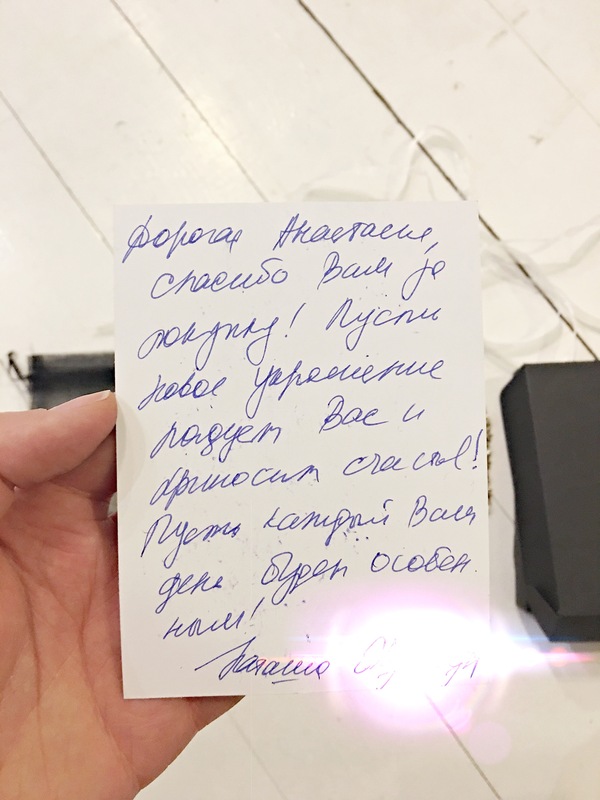 Дорогая Анастасия,
спасибо Вам за
покупку! Пусть
новое украшение
радует Вас и
приносит счастье!
Пусть каждый Ваш
день будет особен
ным!
Наташа